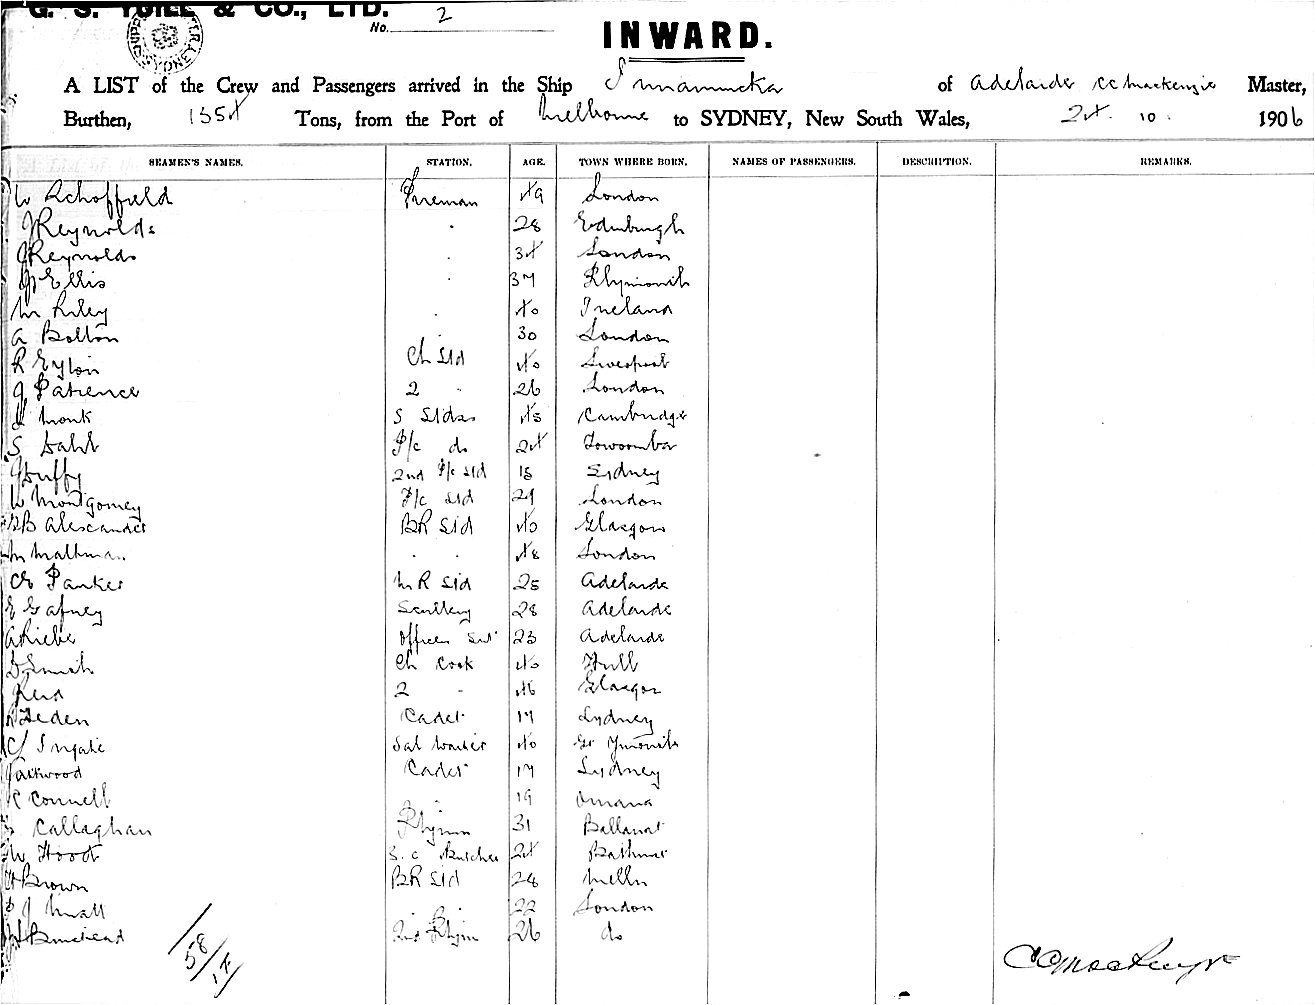 G. S. YUILL & CO., LTD.
No. 2
INWARD.
A LIST of the Crew and Passengers arrived in the Ship Innamincka of Adelaide CC Mackenzie Master,
Burthen, Tons, from the Port of Melbourne to SYDNEY, New South Wales, 24. 10. 1906
SEAMEN'S NAMES. STATION. AGE. TOWN WHERE BORN. NAMES OF PASSENGERS. DESCRIPTION. REMARKS.
W Schoffield Fireman 49 London
J Reynolds 28 Edinburgh
J Reynolds 34 London
J Ellis 37 Plymouth
M Riley 40 Ireland
A Bolton 30 London
R Eyton Ch Std 40 Liverpool
J Patience 2 " 26 London
Monk S Stdss 45 Cambridge
S Dahl P/c do 24 Towoomba
J Duffy 2nd P/c Std 18 Sydney
W Montgomey F/c Std 29 London
B Alexander BR Std 40 Glasgow
M Mathman 48 London
Parker M R Std 25 Adelaide
E Gafney Scullery 28 Adelaide
A Riebe Officers Svt 23 Adelaide
D Smith Ch Cook 40 Hull
Reid 2 " 46 Glasgow
Heden Cadet 17 Sydney
C Ingate Sal Waiter 40 Gt Ymouth
J Attwood Cadet 17 Sydney
R Connell " 19 Omaru
Callaghan 31 Ballarat
W Hood S. C Butcher 24 Bathurst
H Brown BR Std 28 Melb
J Niall 22 London
Bumstead 2nd 26 do
58/14
CC Mackenzie